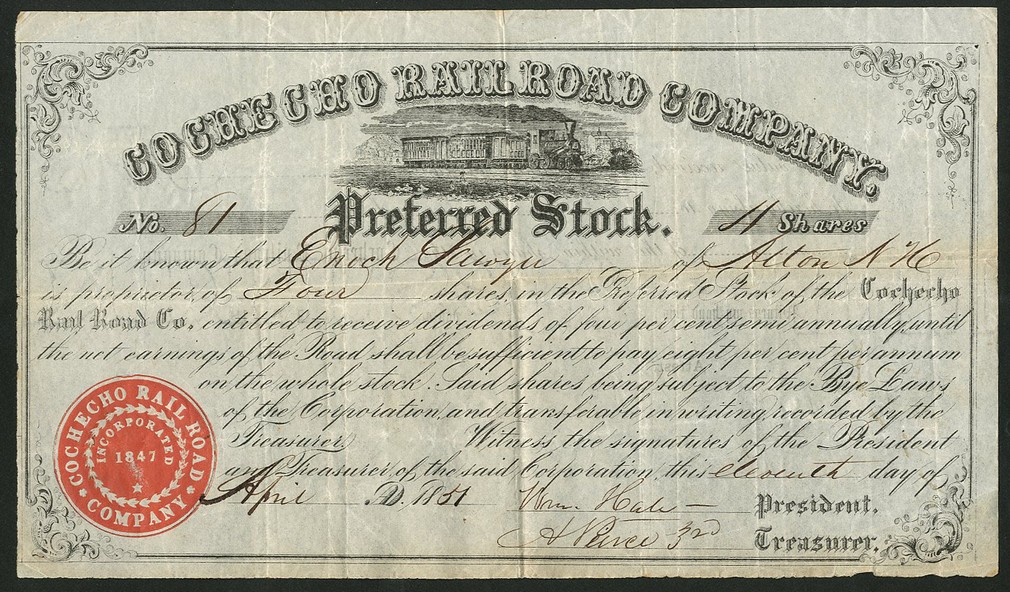 COCHECHO RAIL ROAD COMPANY.
Preferred Stock.
No. 81
4 Shares
Be it known that Enoch Sawyer of Alton N H
is proprietor of Four shares, in the Preferred Stock of the Cochecho
Rail Road Co. entitled to receive dividends of four per cent semi annually, until
the net earnings of the Road shall be sufficient to pay eight per cent per annum
on the whole stock. Said shares being subject to the Bye Laws
of the Corporation, and transferable in writing, recorded by the
Treasurer. Witness the signatures of the President
and Treasurer of the said Corporation, this eleventh day of
April A.D. 1851
Wm. Hale President.
A Pierce 3rd Treasurer.
COCHECHO RAIL ROAD
COMPANY
INCORPORATED
1847